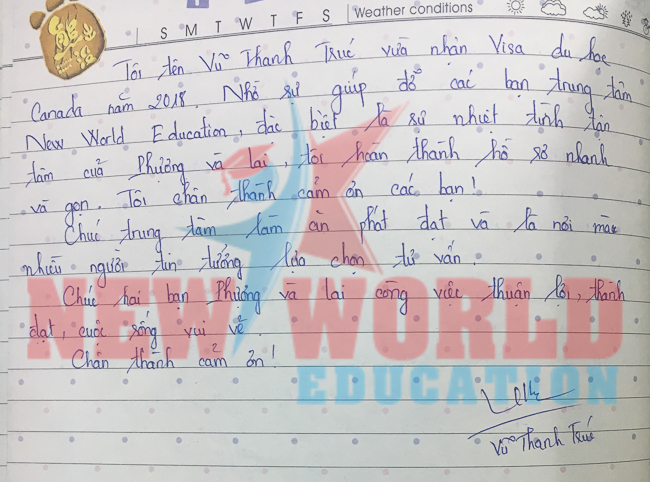 S M T W T F S Weather conditions
Tôi tên Vũ Thanh Trúc vừa nhận Visa du học
Canada năm 2018. Nhờ sự giúp đỡ các bạn trung tâm
New World Education, đặc biệt là sự nhiệt tình tận
tâm của Phương và Lai, tôi hoàn thành hồ sơ nhanh
và gọn. Tôi chân thành cảm ơn các bạn!
Chúc trung tâm làm ăn phát đạt và là nơi mà
nhiều người tin tưởng lựa chọn tư vấn.
Chúc hai bạn Phương và Lai công việc thuận lợi, thành
đạt, cuộc sống vui vẻ.
Chân thành cảm ơn!
NEW WORLD
EDUCATION
Vũ Thanh Trúc